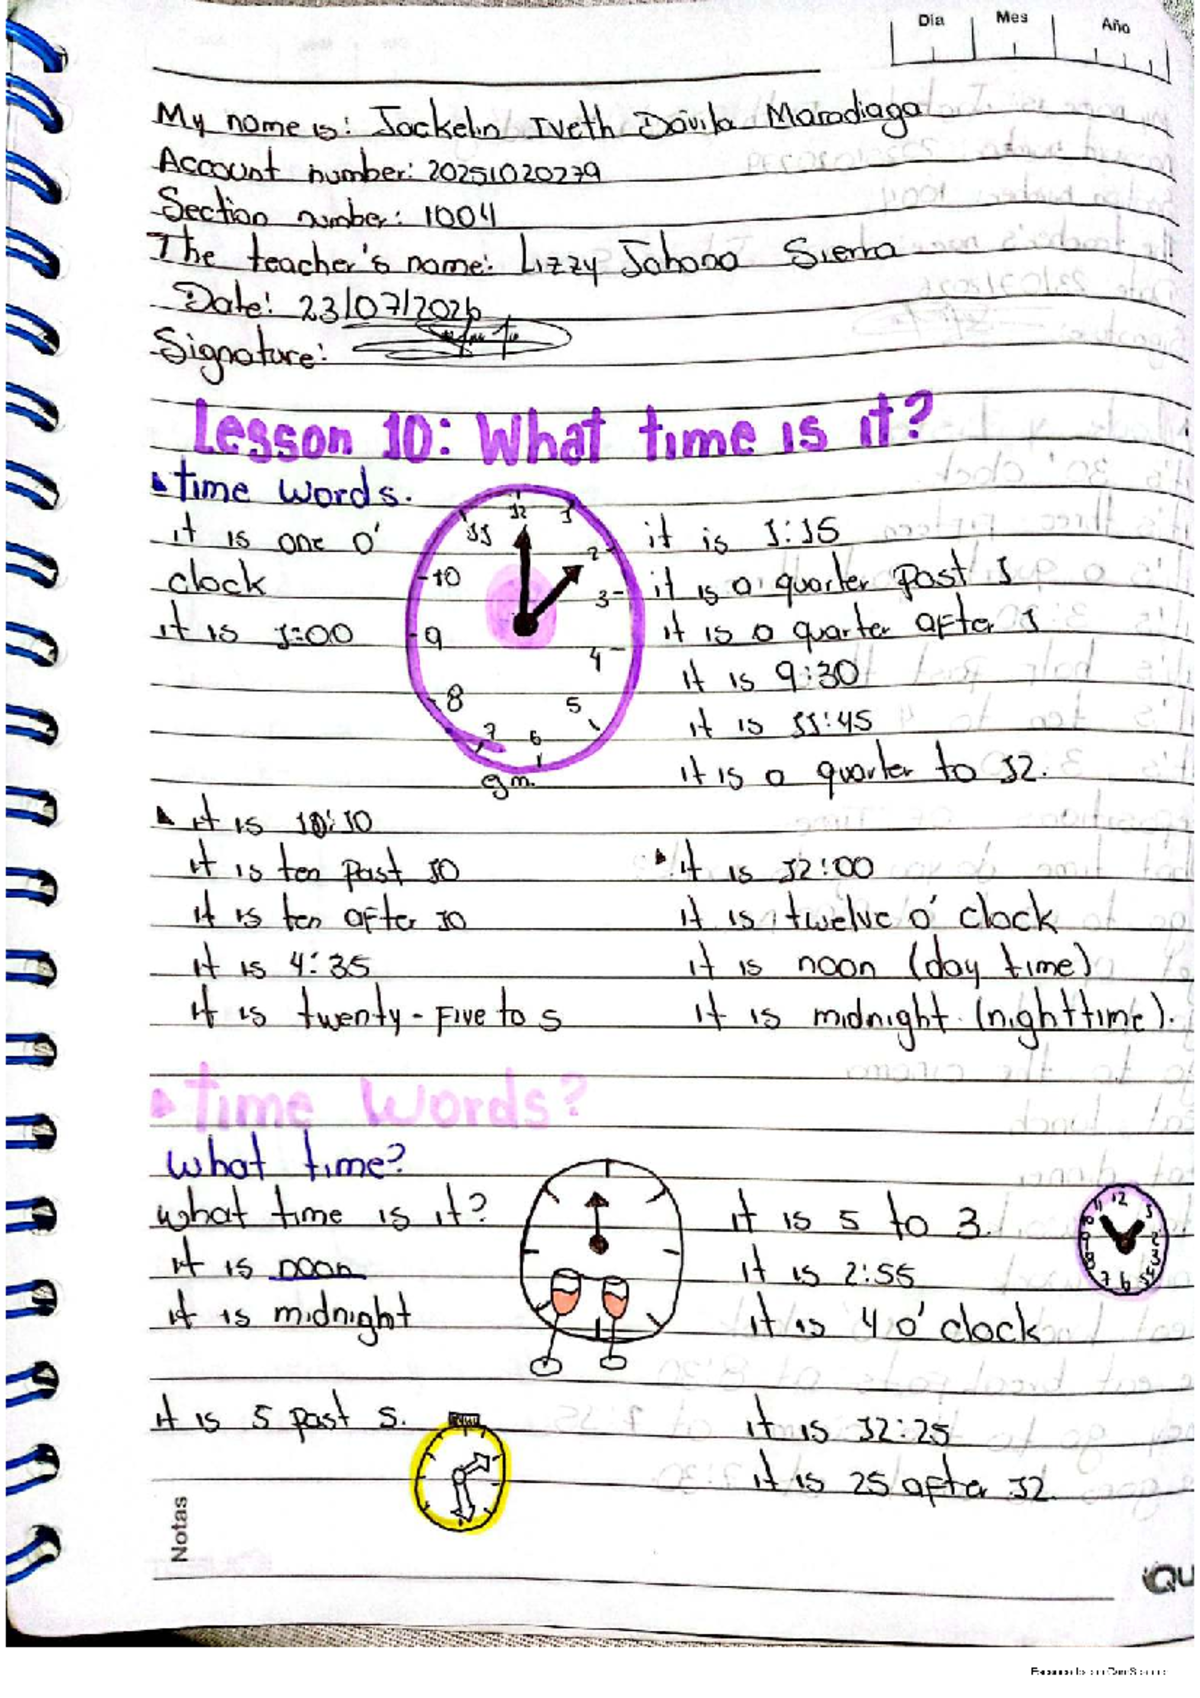 Día Mes Año
My name is: Jackelin Iveth Dávila Maradiaga
Account number: 20251020279
Section number: 1004
The teacher's name: Lizzy Johana Sierra
Date: 23/07/2026
Signature:
Lesson 10: What time is it?
time words.
it is one o'
clock
it is 1:00
12
1
2
3
4
5
6
7
8
9
10
11
it is 1:15
it is a quarter past 1
it is a quarter after 1
it is 9:30
it is 11:45
it is a quarter to 12.
it is 10:10
it is ten past 10
it is ten after 10
it is 4:35
it is twenty-five to 5
it is 12:00
it is twelve o' clock
it is noon (day time)
it is midnight (nighttime).
time words?
what time?
what time is it?
it is noon
it is midnight
it is 5 past 5.
it is 5 to 3.
it is 2:55
it is 4 o' clock
it is 12:25
it is 25 after 12
Notas